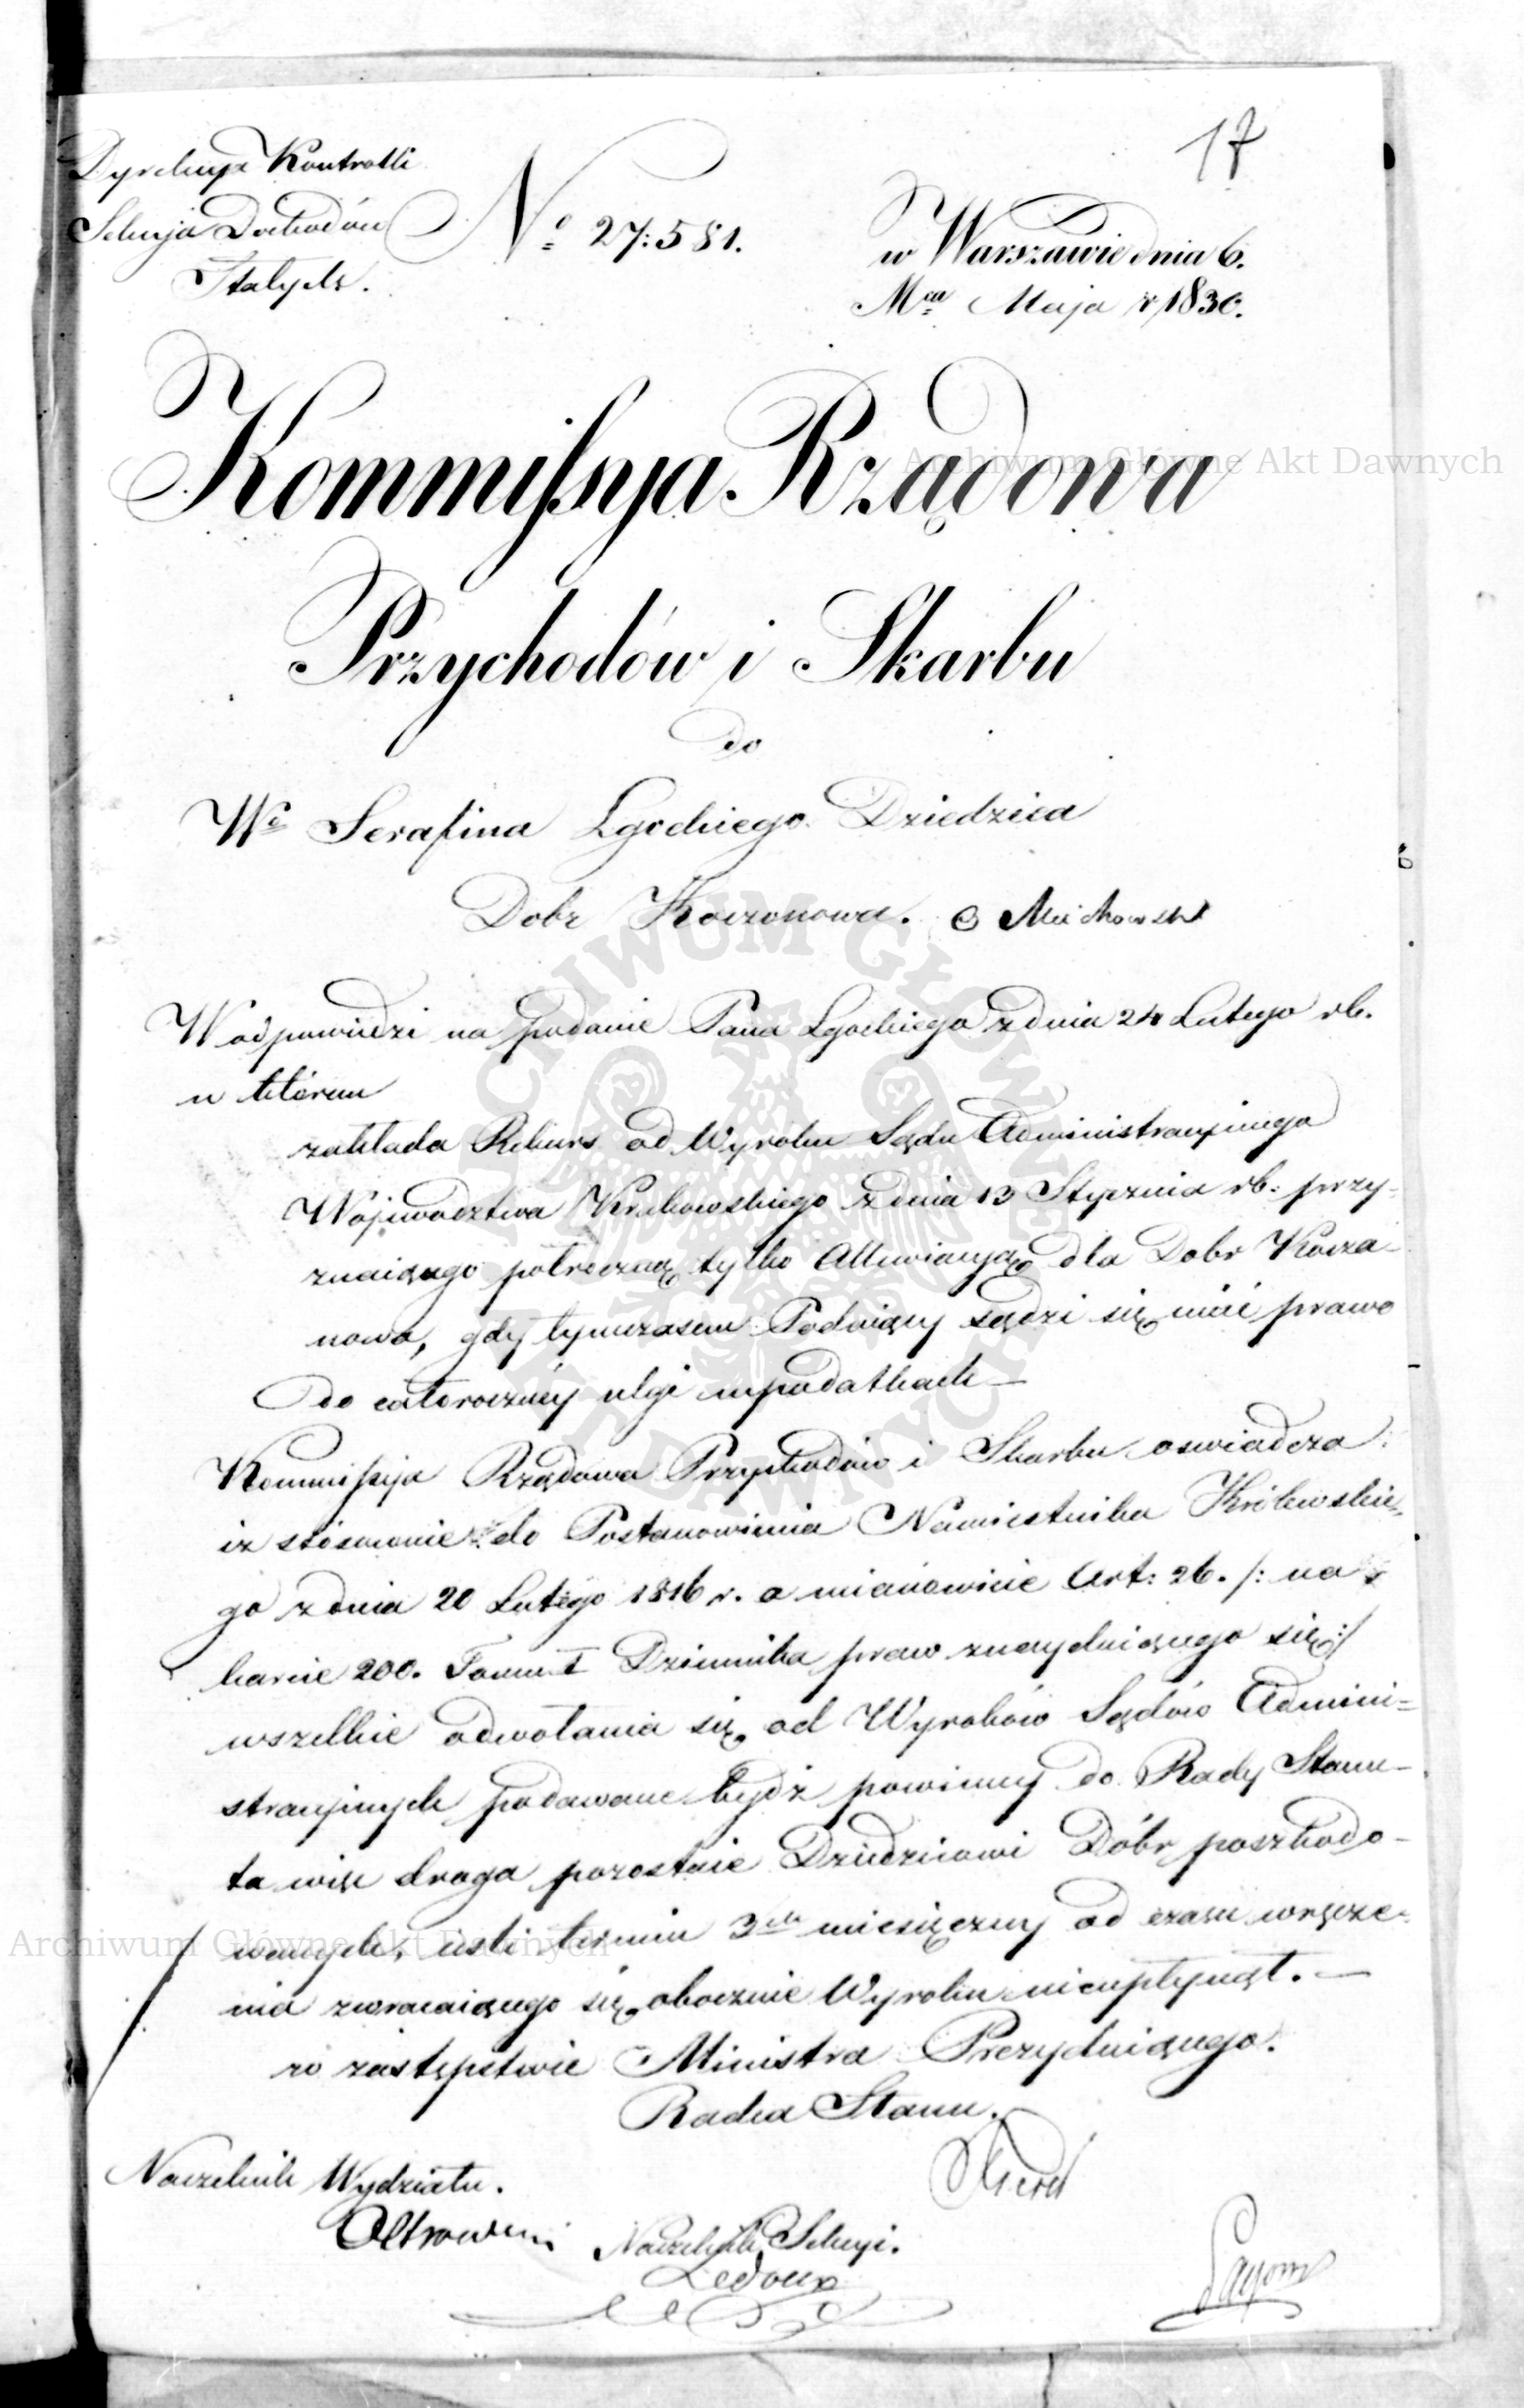 17
Dyrekcya Kontrolli
Sekcyja Dochodów
Stałych.
No 27:581.
w Warszawie dnia 6.
Mca Maja r 1830.
Kommissyja Rządowa
Przychodów i Skarbu
do
Wo Serafina Lgockiego Dziedzica
Dobr Koczonowa.
W odpowiedzi na podanie Pana Lgockiego z dnia 24 Lutego rb.
w którem
zakłada Rekurs od Wyroku Sądu Administracyjnego
Województwa Krakowskiego z dnia 13 Stycznia rb: przy-
znaiącego półroczną tylko Allewiacyją dla Dobr Kocza-
nowa, gdy tymczasem Podaiący sądzi się mieć prawo
do całorocznéy ulgi w podatkach –
Kommissyja Rządowa Przychodów i Skarbu oswiadcza:
iż stósownie do Postanowienia Namiestnika Królewskie-
go z dnia 20 Lutego 1816 r. a mianowicie Art: 26. /: na
karcie 200. Tomu I Dziennika praw znayduiącego się :/
wszelkie odwołania się od Wyroków Sądów Admini=
stracyjnych podawane bydź powinny do Rady Stanu –
ta więc droga pozostaie Dziedzicowi Dóbr poszkodo-
wanych, iesli termin 3ch miesięczny od czasu wręcze-
nia zwracaiącego się obocznie Wyroku nieupłynął. –
w zastępstwie Ministra Prezyduiącego.
Radca Stanu.
Naczelnik Wydziału.
Naczelnik Sekcyi.
Ledoux
Archiwum Główne Akt Dawnych
Archiwum Główne Akt Dawnych
ARCHIWUM GŁÓWNE AKT DAWNYCH